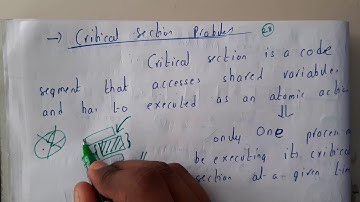 → Critical Section Problem
28
Critical section is a code
segment that accesses shared variable.
and has to executed as an atomic actio
⇓
only One process
be executing its critical
section at a given time